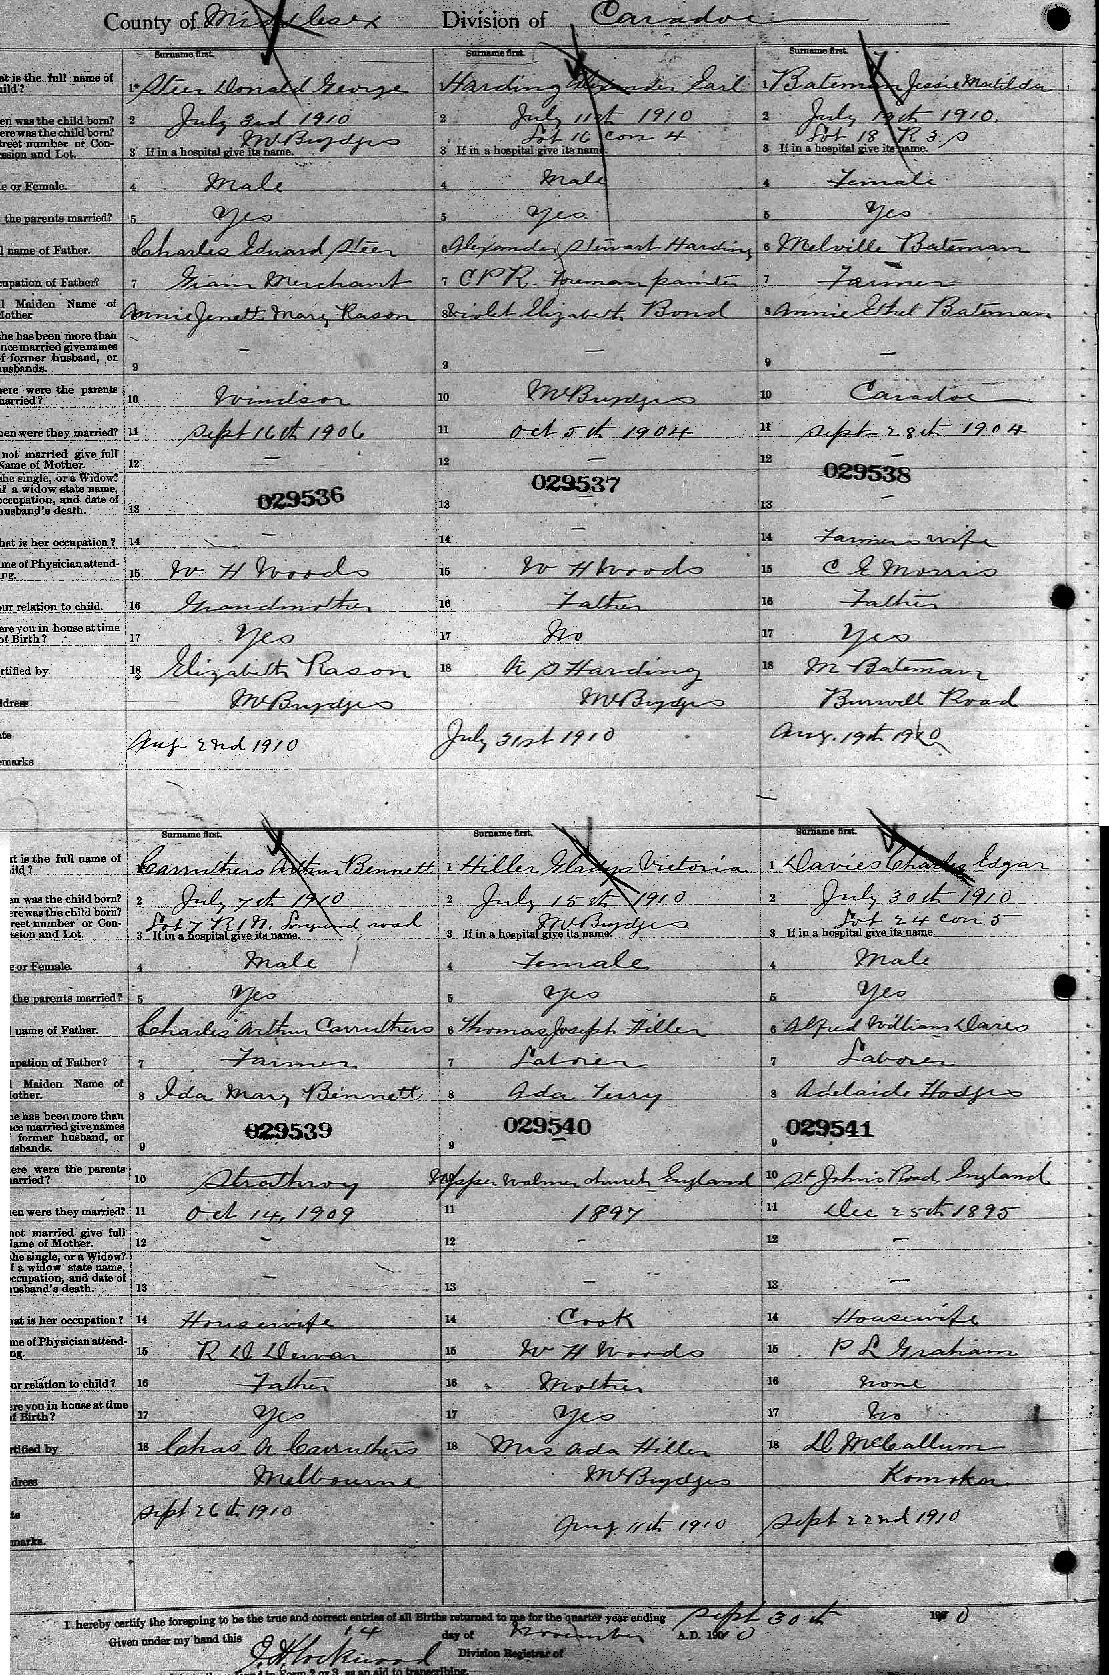 County of Middlesex Division of Caradoc
Surname first. Surname first. Surname first.
at is the full name of 1 Steer Donald George 1 Harding Alexander Earl 1 Bateman Jessie Matilda
hild?
en was the child born? 2 July 3rd 1910 2 July 11th 1910 2 July 19th 1910.
ere was the child born? Mt Brydges Lot 16 con 4 Lot 18 R 3 S
treet number or Con-
ssion and Lot. 3 If in a hospital give its name. 3 If in a hospital give its name. 3 If in a hospital give its name.
e or Female. 4 Male 4 Male 4 Female
the parents married? 5 Yes 5 Yes 5 Yes
l name of Father. 6 Charles Edward Steer 6 Alexander Stewart Harding 6 Melville Bateman
cupation of Father? 7 Grain Merchant 7 C P R. Foreman painter 7 Farmer
l Maiden Name of 8 Annie Jenett Mary Rason 8 Violet Elizabeth Bond 8 Annie Ethel Bateman
Mother
he has been more than
nce married give names
f former husband, or
usbands. 9 – 9 – 9 –
here were the parents
married? 10 Windsor 10 Mt Brydges 10 Caradoc
hen were they married? 11 Sept 16th 1906 11 Oct 5th 1904 11 Sept 28th 1904
not married give full
Name of Mother. 12 – 12 – 12 –
she single, or a Widow?
if a widow state name,
occupation, and date of
husband's death. 13 029536 13 029537 – 13 029538 –
hat is her occupation? 14 – 14 – 14 Farmers wife
me of Physician attend-
ng. 15 W H Woods 15 W H Woods 15 C E Morris
our relation to child. 16 Grandmother 16 Father 16 Father
ere you in house at time
of Birth? 17 Yes 17 No 17 Yes
rtified by 18 Elizabeth Rason 18 A S Harding 18 M Bateman
ddress Mt Brydges Mt Brydges Burwell Road
ate Aug 22nd 1910 July 31st 1910 Aug. 19th 1910
emarks
Surname first. Surname first. Surname first.
at is the full name of 1 Carruthers Arthur Bennett 1 Hiller Gladys Victoria 1 Davies Charles Edgar
hild?
en was the child born? 2 July 7th 1910 2 July 15th 1910 2 July 30th 1910
ere was the child born? Lot 7 R 1 N. Longwood road Mt Brydges Lot 24 con 5
treet number or Con-
ssion and Lot. 3 If in a hospital give its name. 3 If in a hospital give its name. 3 If in a hospital give its name.
e or Female. 4 Male 4 Female 4 Male
the parents married? 5 Yes 5 Yes 5 Yes
name of Father. 6 Charles Arthur Carruthers 6 Thomas Joseph Hiller 6 Alfred William Davies
upation of Father? 7 Farmer 7 Laborer 7 Laborer
Maiden Name of
other. 8 Ida Mary Bennett 8 Ada Terry 8 Adelaide Hodges
he has been more than
nce married give names
former husband, or
usbands. 9 029539 9 029540 9 029541
ere were the parents
married? 10 Strathroy 10 Upper Walmer church England 10 St Johns Road, England
en were they married? 11 Oct 14, 1909 11 1897 11 Dec 25th 1895
not married give full
Name of Mother. 12 – 12 – 12 –
she single, or a Widow?
f a widow state name,
ccupation, and date of
usband's death. 13 – 13 – 13 –
hat is her occupation? 14 Housewife 14 Cook 14 Housewife
me of Physician attend-
ng. 15 R D Dewar 15 W H Woods 15 P L Graham
ur relation to child? 16 Father 16 Mother 16 none
ere you in house at time
f Birth? 17 Yes 17 Yes 17 No
rtified by 18 Chas A Carruthers 18 Mrs Ada Hiller 18 D McCallum
dress Melbourne Mt Brydges Komoka
Sept 26th 1910 Aug 11th 1910 Sept 22nd 1910
marks.
I hereby certify the foregoing to be the true and correct entries of all Births returned to me for the quarter year ending Sept 30th 1910
Given under my hand this 14 day of November A.D. 1910
Division Registrar of
as an aid to transcribing.